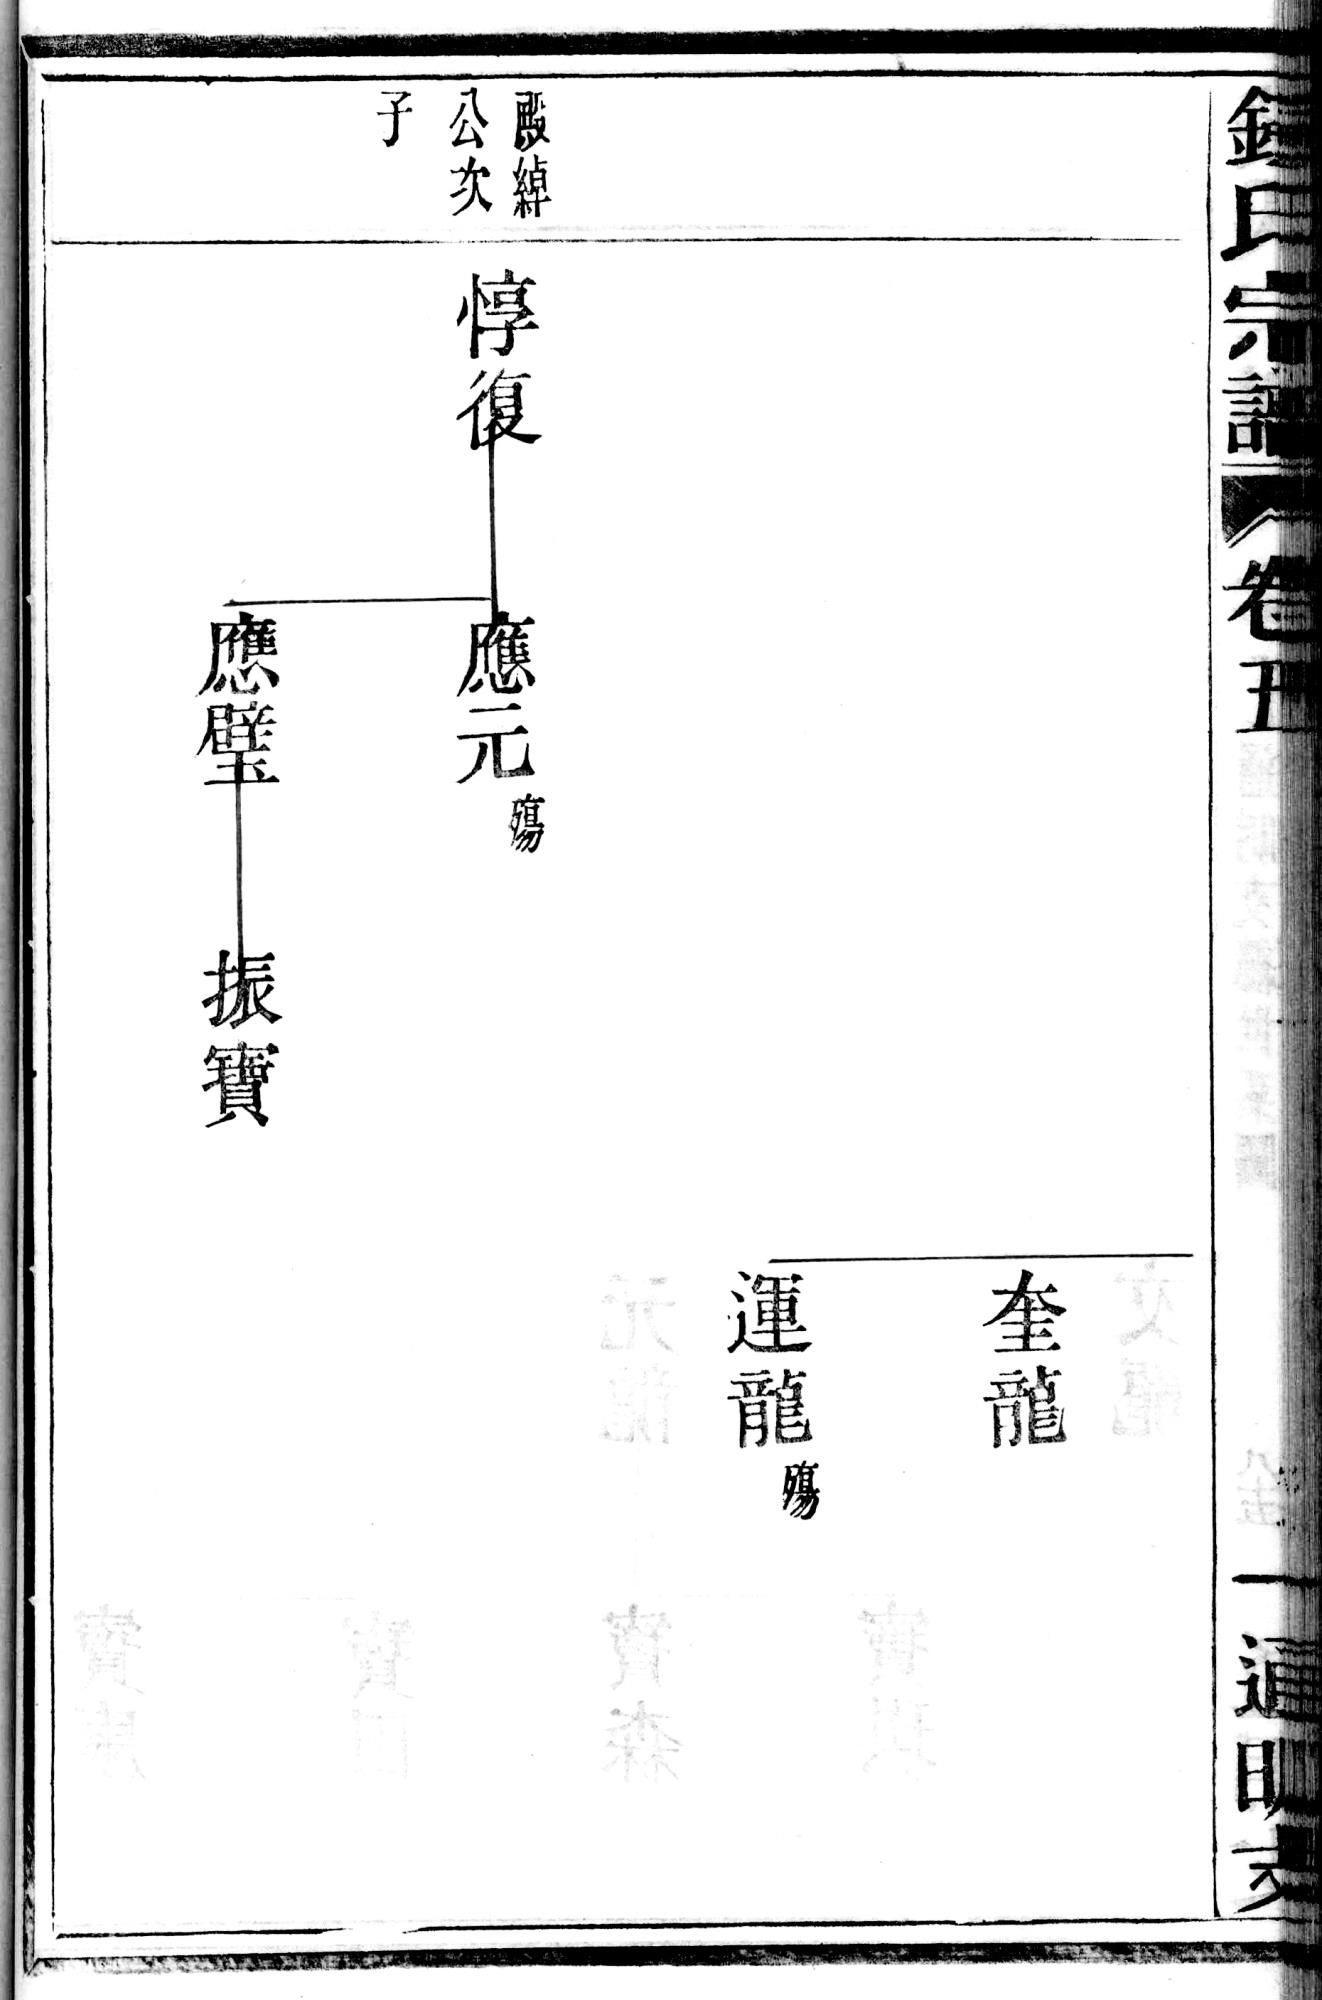 氏宗譜 卷五 一 通明支
奎龍
運龍 殤
殿綽
公次
子
惇復
應元 殤
應璧
振寶